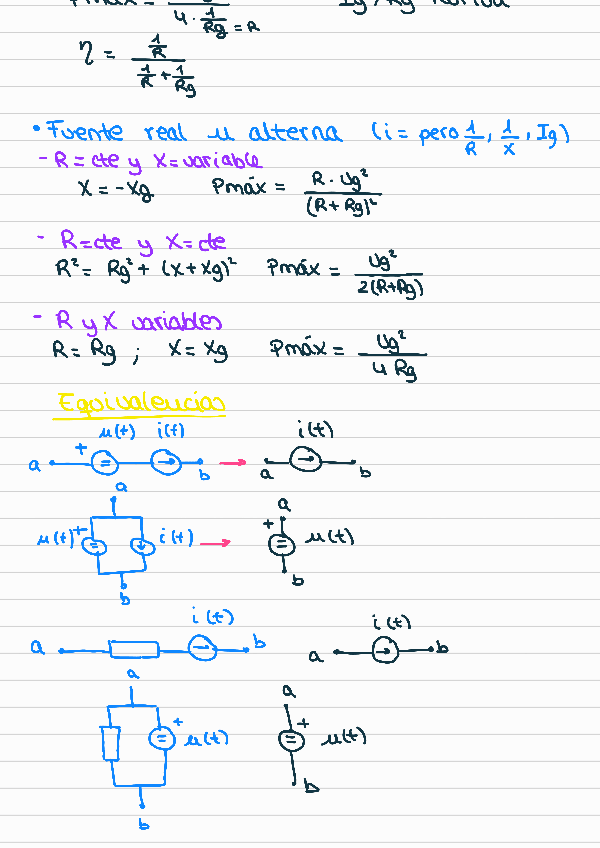 Pmáx =
4 · 1/Rg = R
Ig, Rg
η = (1/R) / (1/R + 1/Rg)
• Fuente real u alterna (i = pero 1/R, 1/X, Ig)
- R = cte y X = variable
X = -Xg Pmáx = R · Ug² / (R + Rg)²
- R = cte y X = cte
R² = Rg² + (X + Xg)² Pmáx = Ug² / 2(R+Rg)
- R y X variables
R = Rg ; X = Xg Pmáx = Ug² / 4 Rg
Equivalencias
u(t) i(t) i(t)
a + = b a b
a a
u(t) + = i(t) + = u(t)
b b
i(t) i(t)
a b a b
a a
+ = u(t) + = u(t)
b b